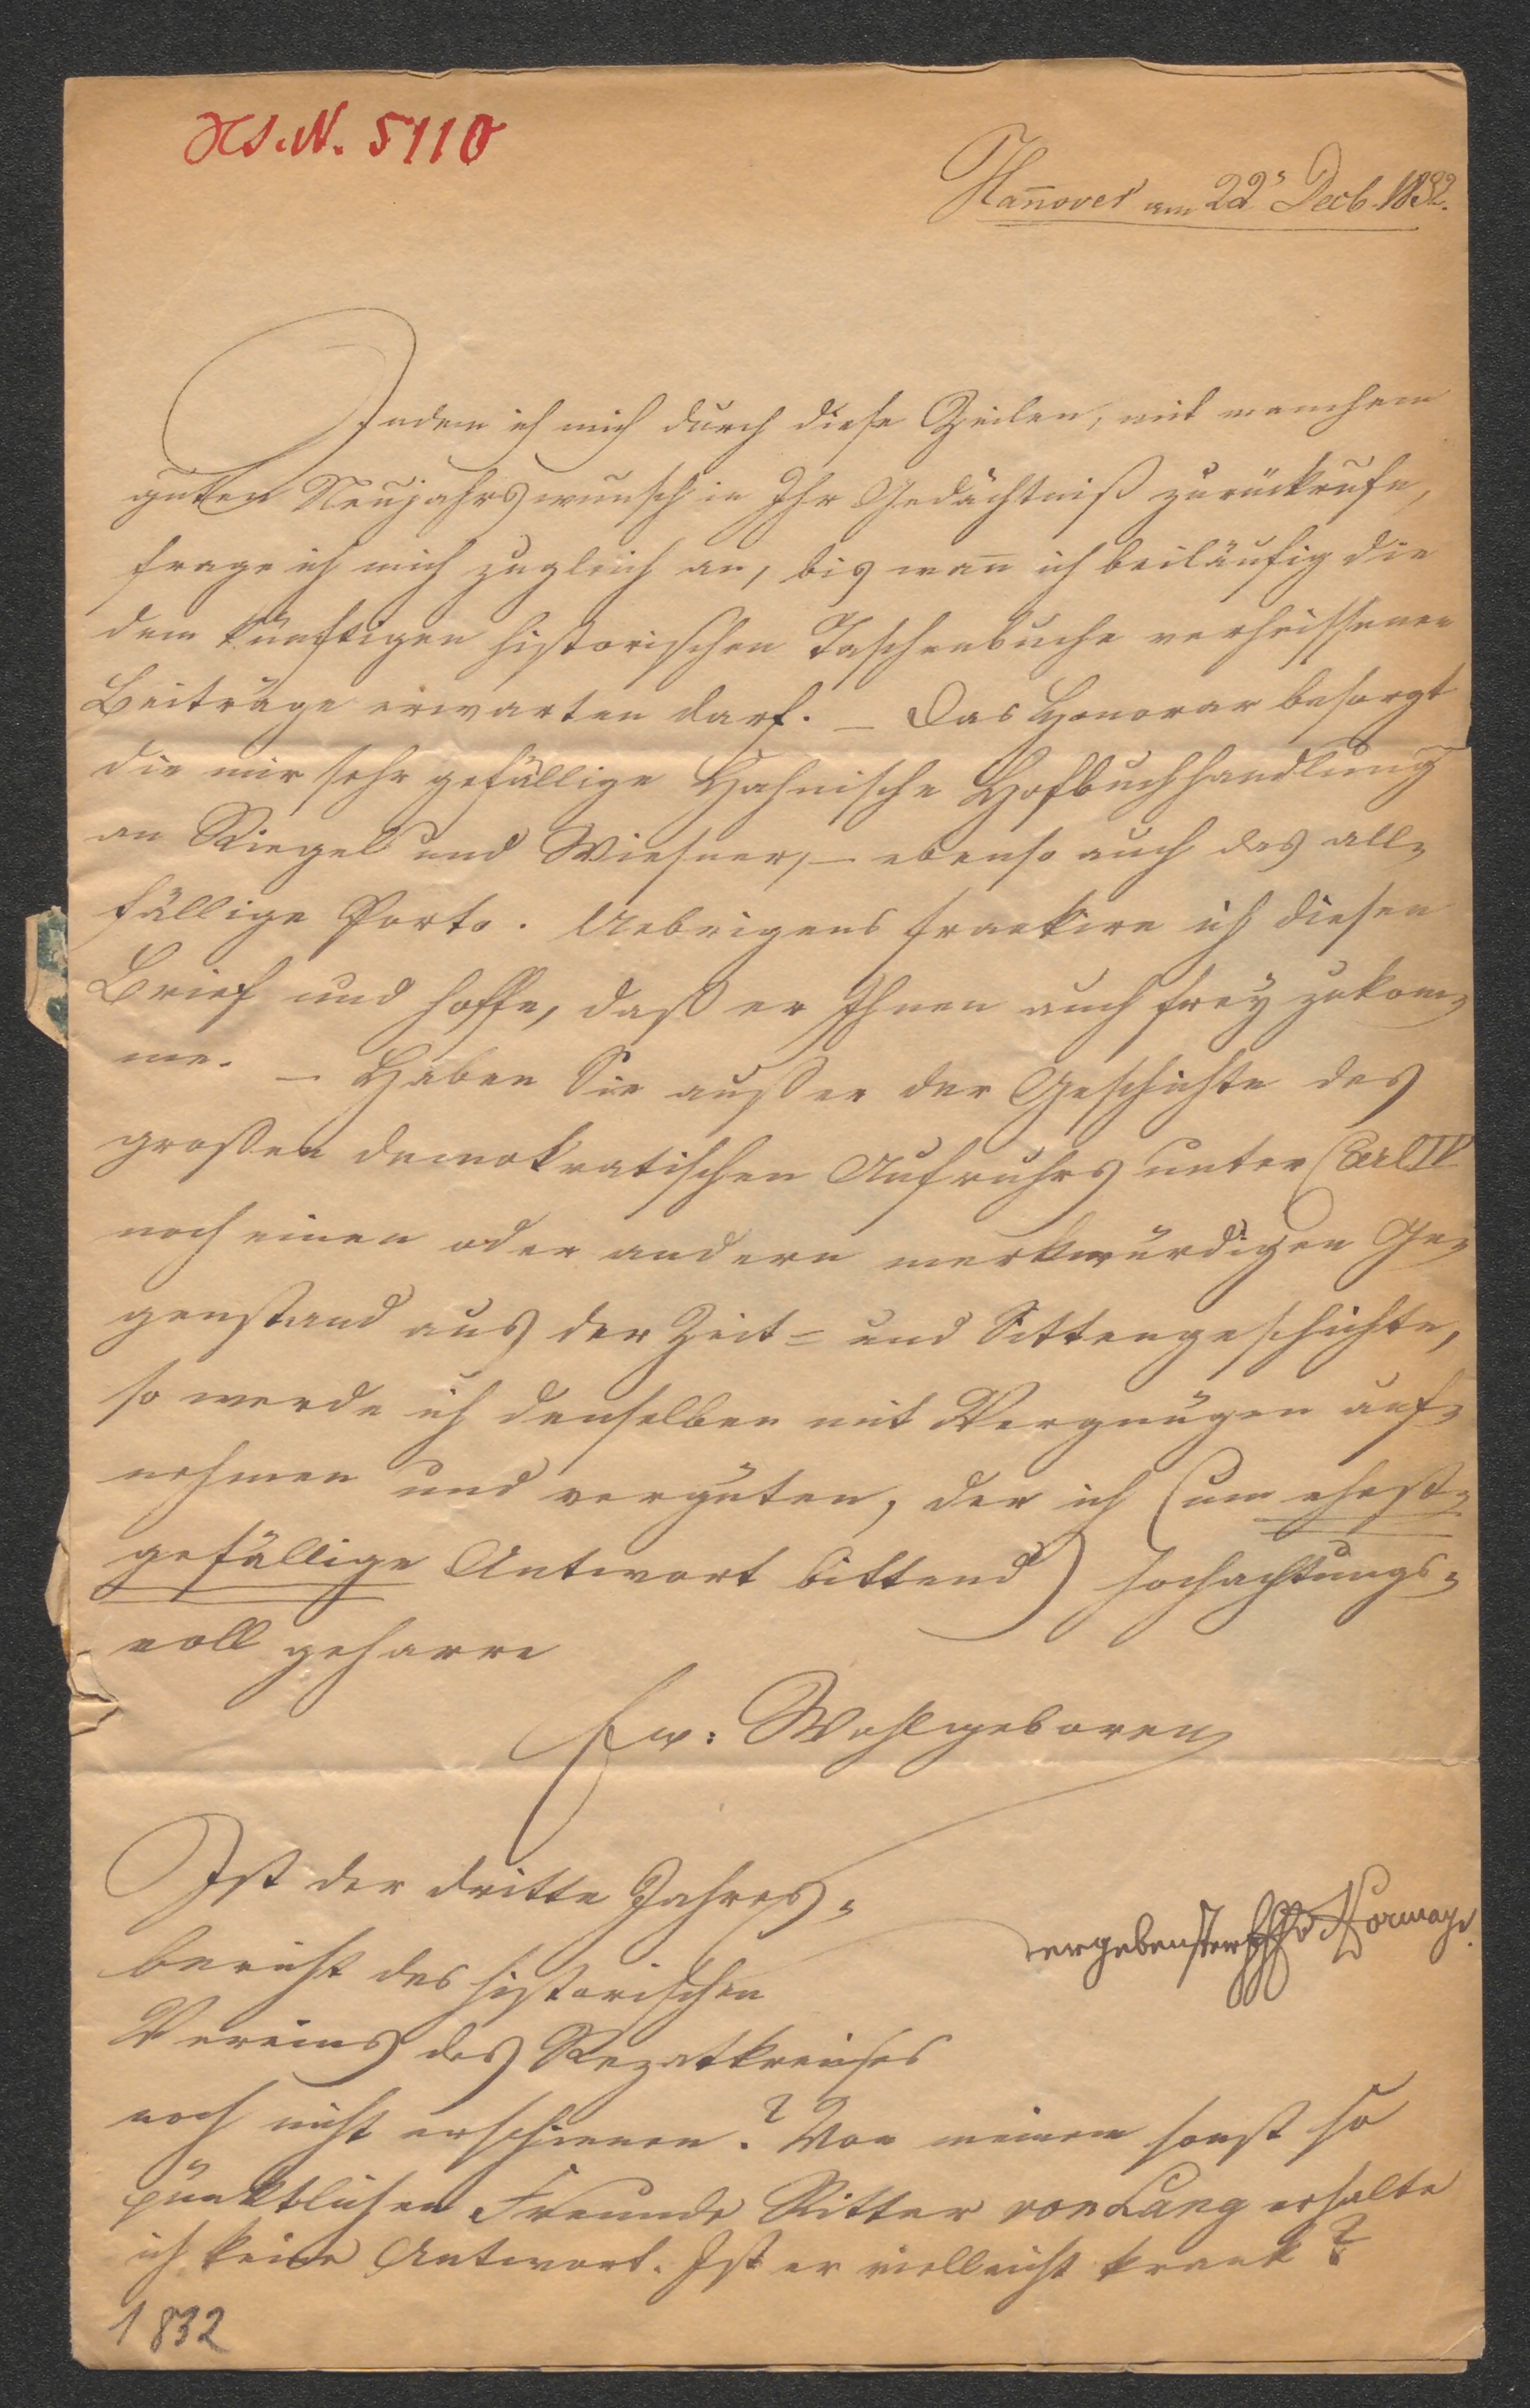 Hs. N. 5110
Hañover am 22ˢ Decb. 1832.
Indem ich mich durch diese Zeilen, mit manchem
guten Neujahrswunsch in Ihr Gedächtniß zurückrufe,
frage ich mich zugleich an, bis wañ ich beiläufig die
dem künftigen historischen Taschenbuche verheissenen
Beiträge erwarten darf. – Das Honorar besorgt
die mir sehr gefällige Hahnische Hofbuchhandlung
an Riegel und Wiesner, – ebenso auch das all-
fällige Porto. Uebrigens frankire ich diesen
Brief und hoffe, daß er Ihnen auch frey zukom-
me. – Haben Sie außer der Geschichte des
großen demokratischen Aufruhrs unter Carl IV
noch einen oder andern merkwürdigen Ge-
genstand aus der Zeit- und Sittengeschichte,
so werde ich denselben mit Vergnügen auf-
nehmen und vergüten, der ich (um ehest-
gefällige Antwort bittend) hochachtungs-
voll geharre
Ew. Wohlgeboren
ergebenster Hormayr.
Ist der dritte Jahres-
bericht des historischen
Vereins des Rezatkreises
noch nicht erschienen? Von meinem sonst so
pünktlichen Freunde Ritter von Lang erhalte
ich keine Antwort. Ist er vielleicht krank?
1832